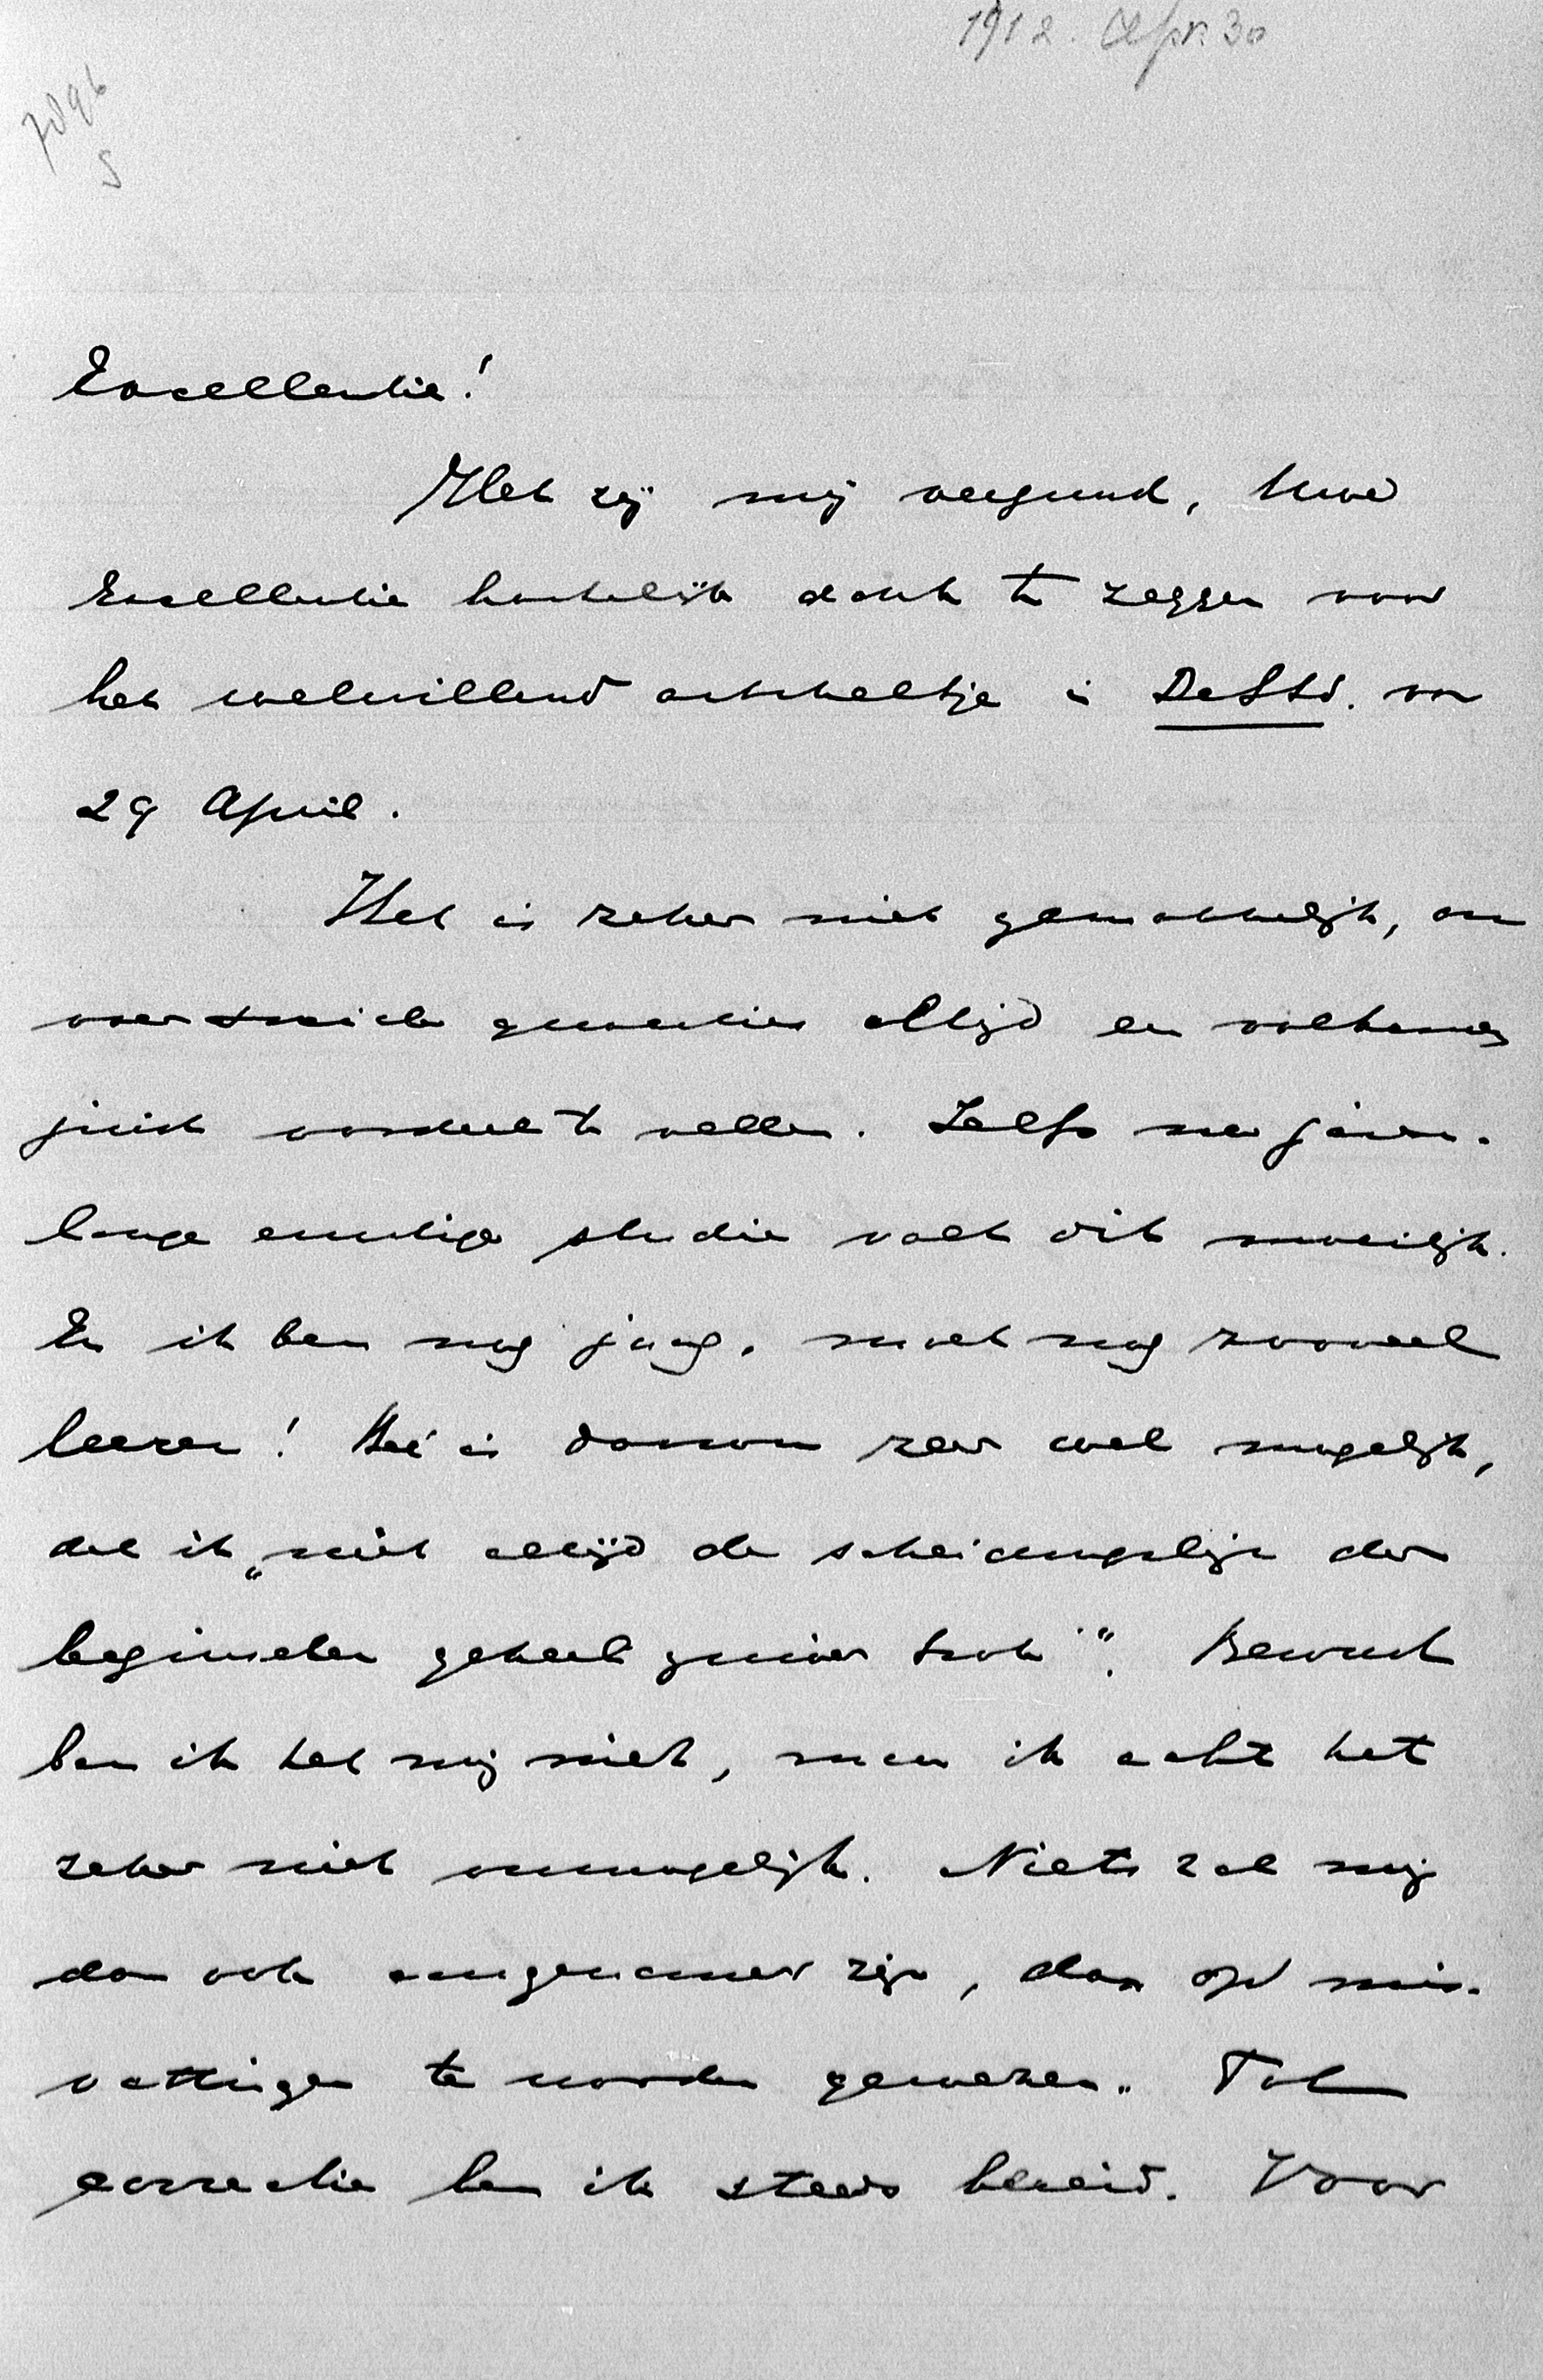 1912. Apr. 30
7096
5
Excellentie!
Het zij mij vergund, Uwe
Excellentie hartelijk dank te zeggen voor
het welwillend artikeltje in De Std. van
29 April.
Het is zeker niet gemakkelijk, om
over quaesties altijd een volkomen
juist oordeel te vellen. Zelfs na jaren-
lange ernstige studie valt dit moeilijk.
En ik ben nog jong, moet nog zooveel
leeren! Het is daarom zeer wel mogelijk,
dat ik „niet altijd de scheidingslijn der
beginselen geheel zuiver trok". Bewust
ben ik het mij niet, maar ik acht het
zeker niet onmogelijk. Niets zal mij
dan ook aangenamer zijn, dan op mis-
vattingen te worden gewezen. Tot
correctie ben ik steeds bereid. Voor